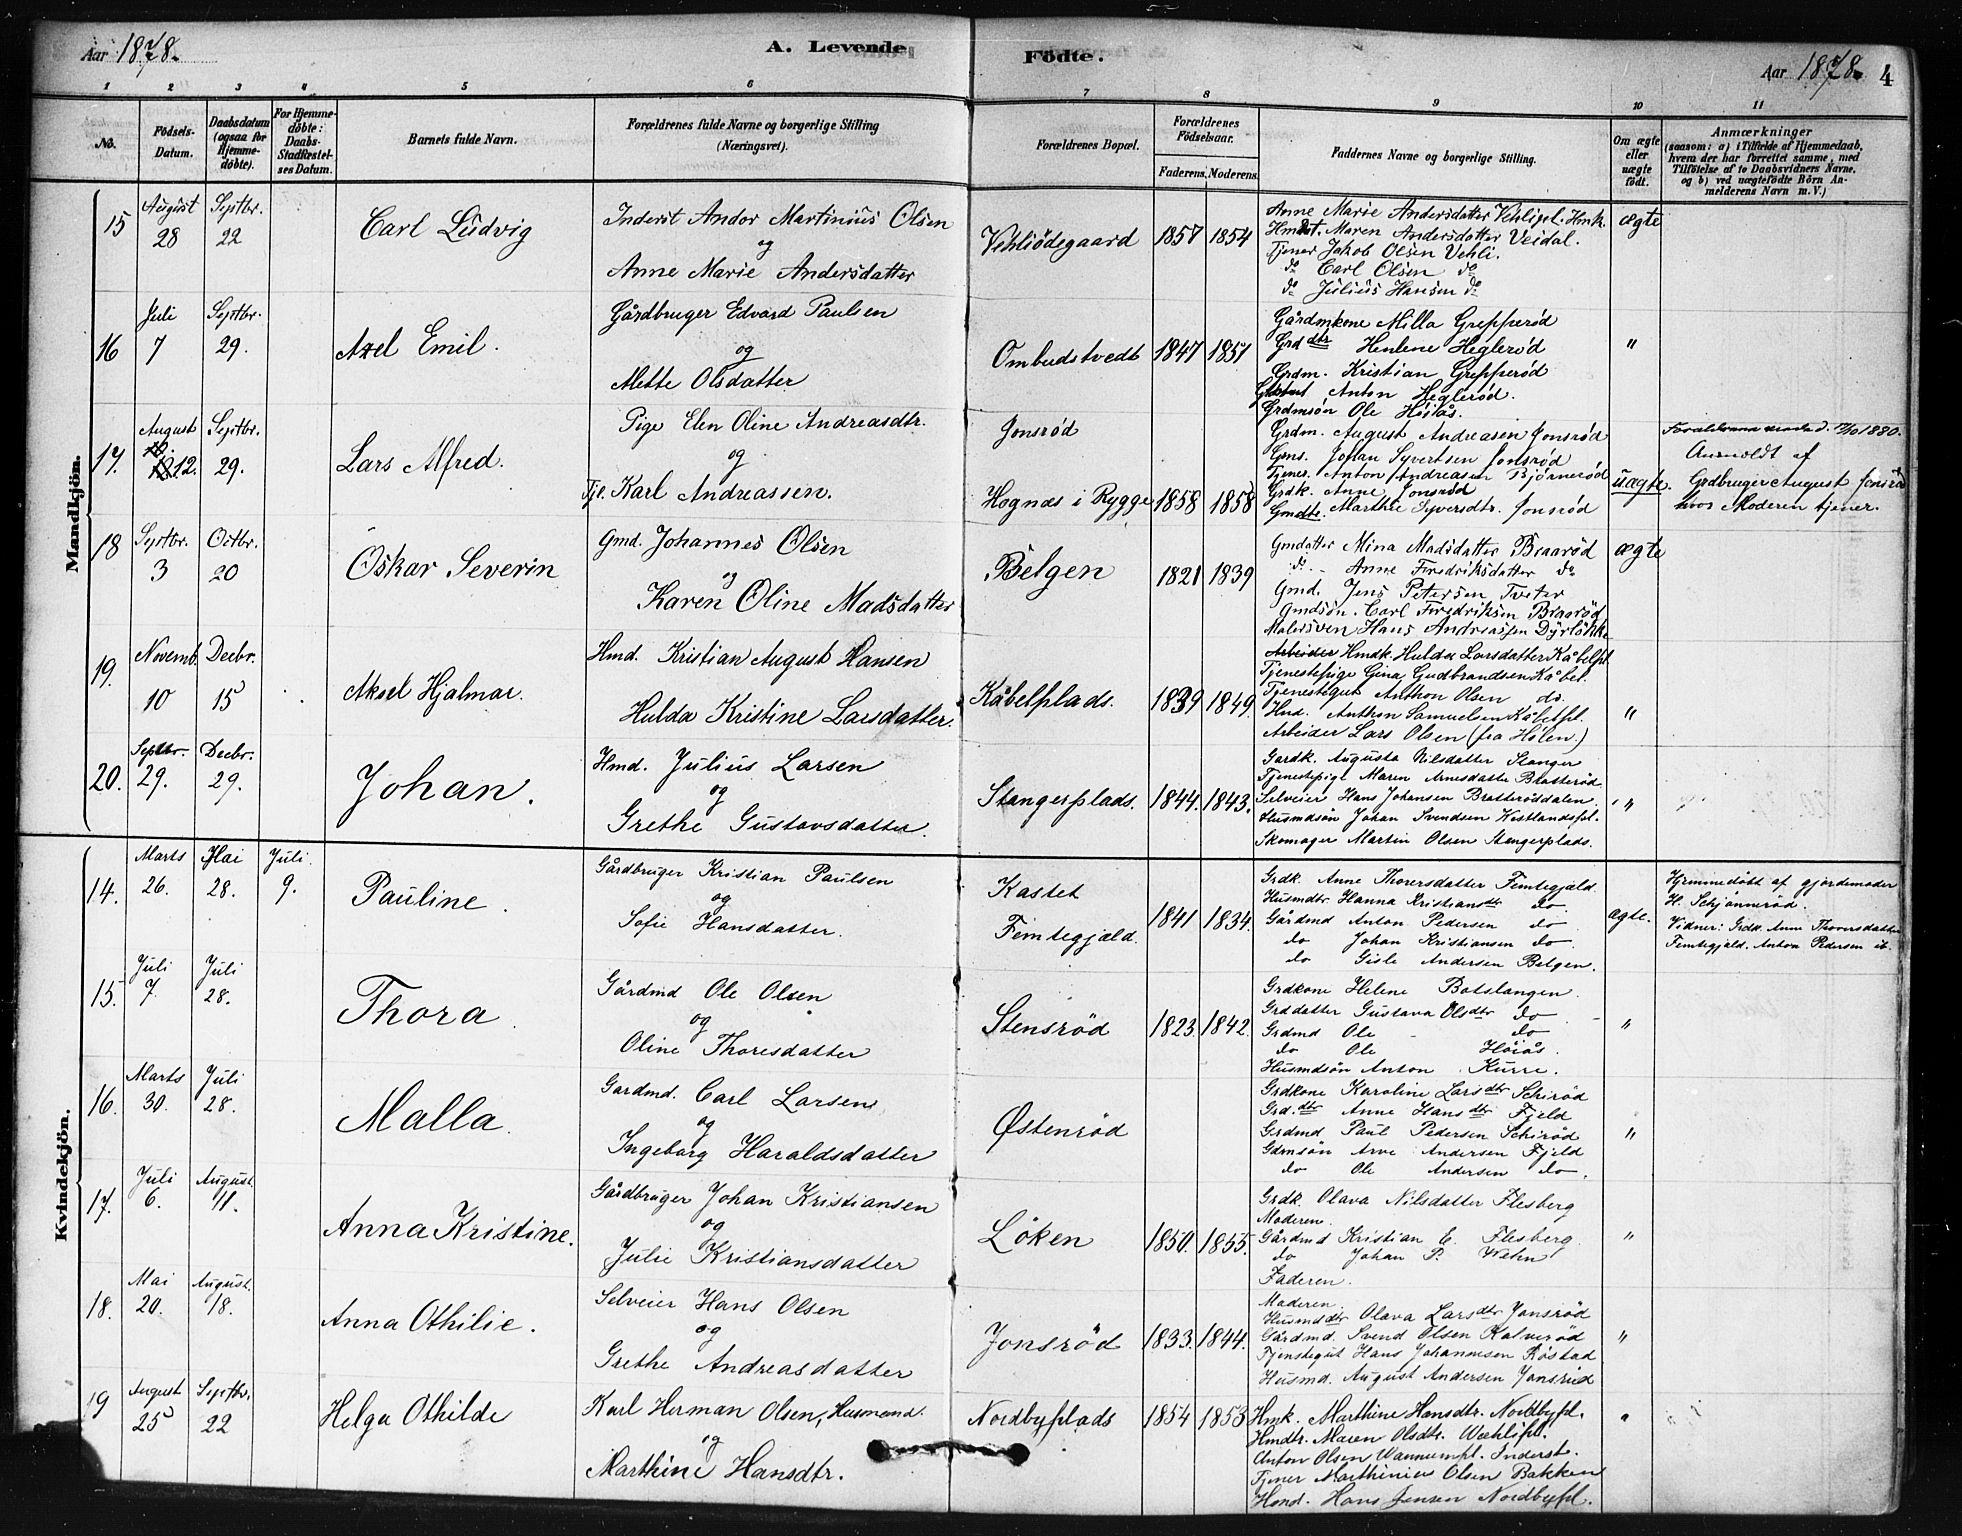 Aar 1878.
A. Levende Födte.
Aar 1878. 4
1 2 3 4 5 6 7 8 9 10 11
No.
Födsels-Datum.
Daabsdatum (ogsaa for Hjemme-döbte).
For Hjemme-döbte: Daabs-Stadfæstel-ses Datum.
Barnets fulde Navn.
Forældrenes fulde Navne og borgerlige Stilling (Næringsvei).
Forældrenes Bopæl.
Forældrenes Födselsaar.
Faderens. Moderens.
Faddernes Navne og borgerlige Stilling.
Om ægte eller uægte födt.
Anmærkninger
(saasom: a) i Tilfælde af Hjemmedaab,
hvem der har forrettet samme, med
Tilföielse af to Daabsvidners Navne,
og b) ved uægtefödte Börn An-
melderens Navn m. V.)
Mandkjön.
15 August 28 Septbr. 22
Carl Ludvig
Inderst Andor Martinius Olsen
og
Anne Marie Andersdatter
Vehliödegaard 1857 1854
Anne Marie Andersdatter Vehlipl. Hmk.
Maren Andersdatter Veidal.
Tjener Jakob Olsen Vehli.
do Carl Olsen do
do Julius Hansen do
ægte
16 Juli 7 Septbr. 29.
Axel Emil.
Gårdbruger Edvard Paulsen
og
Mette Olsdatter
Ombudstvedt 1847 1851
Gårdmkone Milla Grepperød
Grddtr Henlene Heglerød
Grdm. Kristian Grepperød
Anton Heglerød.
Grdmsøn Ole Høiås.
"
17. August 12. Septbr. 29.
Lars Alfred.
Pige Elen Oline Andreasdtr.
og
Tje. Karl Andreassen.
Jonsrød
Hognæs i Rygge 1858 1858
Grdm. August Andreasen Jonsrød
Gms. Johan Syvertsen Jonsrød
Tjener. Anton Andreasen Bjørnerød
Grdk. Anne Jonsrød
Gmdtr. Marthe Syversdtr. Jonsrød
uægte.
Anmeldt af
Grdbruger August Jonsrød
hvos Moderen tjener.
18 Septbr. 3 Octbr. 20
Oskar Severin
Gmd. Johannes Olsen
og
Karen Oline Madsdatter
Belgen 1821 1839
Gmdatter Mina Madsdatter Braarød
do Anne Fredriksdatter do
Gmd. Jens Petersen Tveter
Gmdsön. Carl Fredriksen Braarød
Malersven Hans Andreassen Dyrløkke
ægte
19. Novemb. 10 Decbr. 15
Aksel Hjalmar.
Hmd. Kristian August Hansen
Hulda Kristine Larsdatter.
Kåbelplads. 1839 1849.
Arbeider Hmdk. Hulda Larsdatter Kåbelpl.
Tjenestepige Gina Gudbrandsen Kåbel.
Tjenestegut Anthon Olsen do.
Hmd. Anthon Samuelsen Kåbelpl.
Arbeider Lars Olsen (fra Hølen.)
"
20. Septbr. 29. Decbr. 29.
Johan.
Hmd. Julius Larsen
og
Grethe Gustavsdatter.
Stangerplads. 1844. 1843.
Gardk. Augusta Nilsdatter Stanger
Tjenestepige Maren Arnesdatter Bratterød
Selveier Hans Johansen Bratterøddalen.
Husmdsön Johan Svendsen Kistlandspl.
Skomager Martin Olsen Stangerplads.
"
Kvindekjön.
14. Marts 26. Mai 28. Juli 9.
Pauline.
Gårdbruger Kristian Paulsen
og
Sofie Hansdatter.
Kastet
Femtegjæld. 1841 1834.
Grdk. Anne Thorersdatter Femtegjæld.
Husmdtr Hanna Kristiansdtr do
Gårdmd Anton Pedersen do
do Johan Kristiansen do.
do Gisle Andersen Belgen.
ægte.
Hjemmedøbt af gjordemoder
H. Schjønnerød.
Vidner: Grdk. Anne Thorersdatter
Femtegjæld. Anton Pedersen ib.
15. Juli 7. Juli 28.
Thora.
Gårdmd Ole Olsen
og
Oline Thoresdatter
Stensrød 1823. 1842.
Grdkone Helene Botslangen.
Grddatter Gustava Olsdtr do
Grdmd Ole do
do Ole Høiås.
Husmdsön Anton Kurre.
"
16. Marts 30. Juli 28.
Malla.
Gardmd. Carl Larsen
og
Ingeborg Haraldsdatter
Østenrød
Grdkone Karoline Larsdtr Schirød
Grd.dtr Anne Hansdtr Fjeld
Grdmd Paul Pedersen Schirød
Gdmsön Arve Andersen Fjeld
do Ole Andersen do.
"
17. Juli 6. August. 11.
Anna Kristine.
Gårdbruger Johan Kristiansen
og
Julie Kristiansdatter
Löken 1850. 1855.
Grdk. Olava Nilsdatter Flesberg
Moderen.
Gårdmd Kristian E. Flesberg.
do Johan P. Wehn
Faderen.
"
18. Mai 20. August. 18.
Anna Othilie.
Selveier Hans Olsen
og
Grethe Andreasdatter
Jonsrød 1833. 1844.
Moderen.
Husmddtr Olava Larsdtr Jonsrød
Gårdmd. Svend Olsen Kalverød
Tjenstegut Hans Johannesen Røstad
Husmd. August Andersen Jonsrød
"
19 August 25 Septbr. 22
Helga Othilde
Karl Herman Olsen, Husmand.
og
Marthine Hansdtr.
Nordbyplads 1854 1853
Hmk. Marthine Hansdtr. Nordbypl.
Hmdtr. Maren Olsdtr. Wæhlipl.
Anton Olsen Wannumpl. Inderst.
Tjener Marthinius Olsen Bakken
Hmd. Hans Jensen Nordbypl.
"